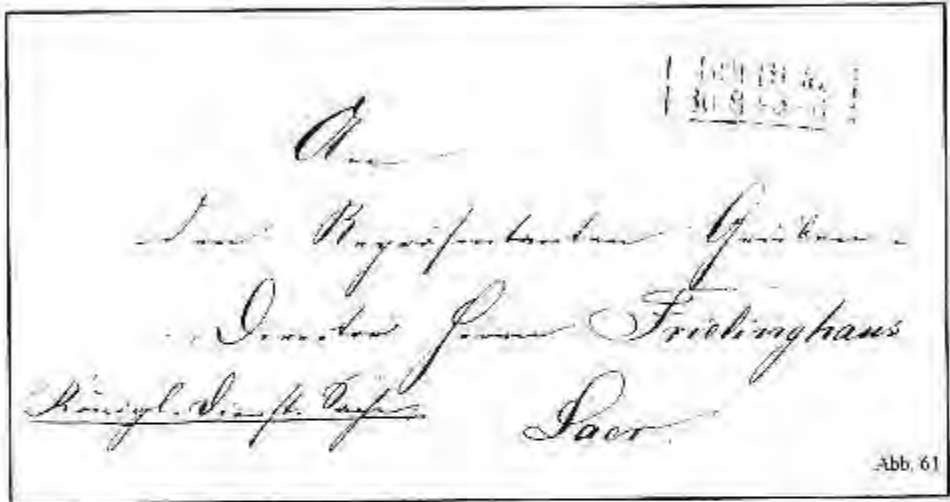 An
den Repräsentanten Gruben-
Director Herrn Frielinghaus
Königl. Dienst. Sache
Laer.
Abb. 61